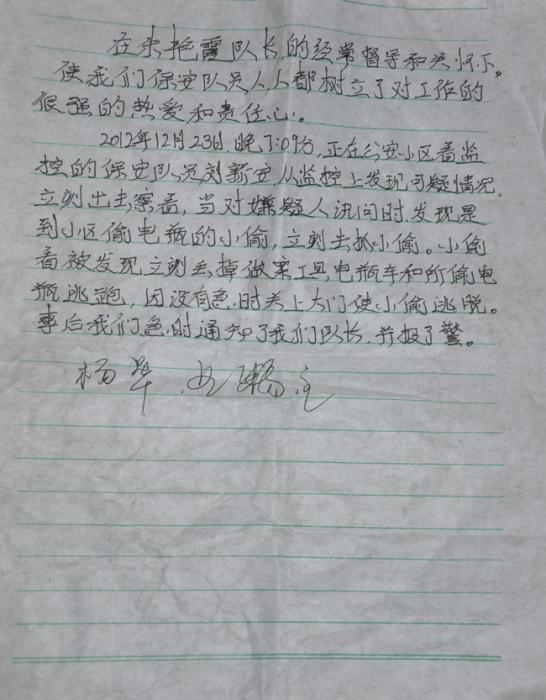 在朱艳霞队长的经常督导和关怀下。
使我们保安队员人人都树立了对工作的
很强的热爱和责任心。
2012年12月23日.晚7:09分,正在公安小区看监
控的保安队员刘新安从监控上发现可疑情况,
立刻出去察看,当对嫌疑人讯问时发现是
到小区偷电瓶的小偷,立刻去抓小偷。小偷
看被发现立刻丢掉做案工具电瓶车和所偷电
瓶逃跑,因没有急.时关上大门使小偷逃脱。
事后我们急.时通知了我们队长,并报了警。
杨华